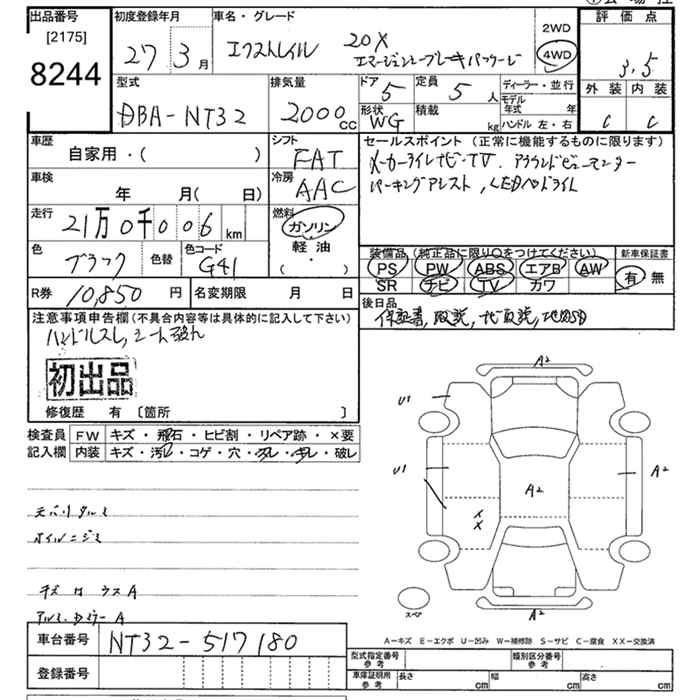 出品番号
[2175]
8244
初度登録年月
27 3月
車名・グレード
エクストレイル 20X
エマージェンシーブレーキパッケージ
2WD
4WD
評価点
3.5
外装 内装
C C
型式
DBA-NT32
排気量
2000cc
ドア 5
定員 5人
形状 WG
積載 kg
ディーラー・並行
モデル年式 年
ハンドル 左・右
車歴
自家用・( )
シフト FAT
冷房 AAC
セールスポイント(正常に機能するものに限ります)
メーカーナビ・TV. アラウンドビューモニター
パーキングアシスト, LEDヘッドライト
車検
年 月( 日)
走行
21万0千006km
燃料
ガソリン
軽油
( ・ )
色
ブラック
色替
色コード
G41
装備品(純正品に限り○をつけてください)
PS PW ABS エアB AW
SR ナビ TV カワ
新車保証書
有 無
R券
10,850円
名変期限 月 日
後日品
保証書, 取説, ナビ取説,
注意事項申告欄(不具合内容等は具体的に記入して下さい)
ハンドルスレ, シート破れ
初出品
修復歴 有 [箇所 ]
検査員
記入欄
FW キズ・飛石・ヒビ割・リペア跡・×要
内装 キズ・汚レ・コゲ・穴・スレ・キレ・破レ
A2
U1
U1
A2
A2
XX
A2
スペア
キズ
ウスA
A
A-キズ E-エクボ U-凹み W-補修跡 S-サビ C-腐食 XX-交換済
車台番号
NT32-517180
登録番号
型式指定番号
参考
類別区分番号
参考
車庫証明用
参考
長さ cm
幅 cm
高さ cm